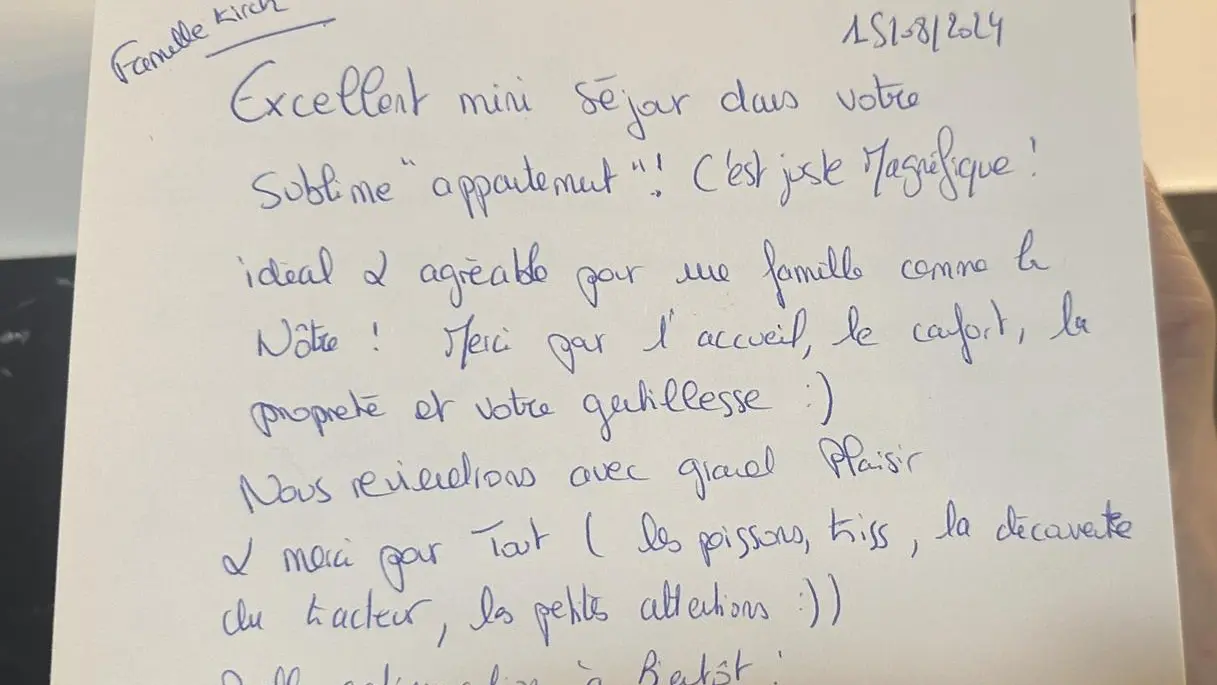 Famille Kirch
15/08/2024
Excellent mini séjour dans votre
Sublime "appartement"! C'est juste Magnifique !
idéal & agréable pour une famille comme la
Nôtre ! Merci pour l'accueil, le confort, la
propreté et votre gentillesse :)
Nous reviendrons avec grand Plaisir
& merci pour Tout ( les poissons, kiss, la découverte
du tracteur, les petites attentions :))
à Bientôt